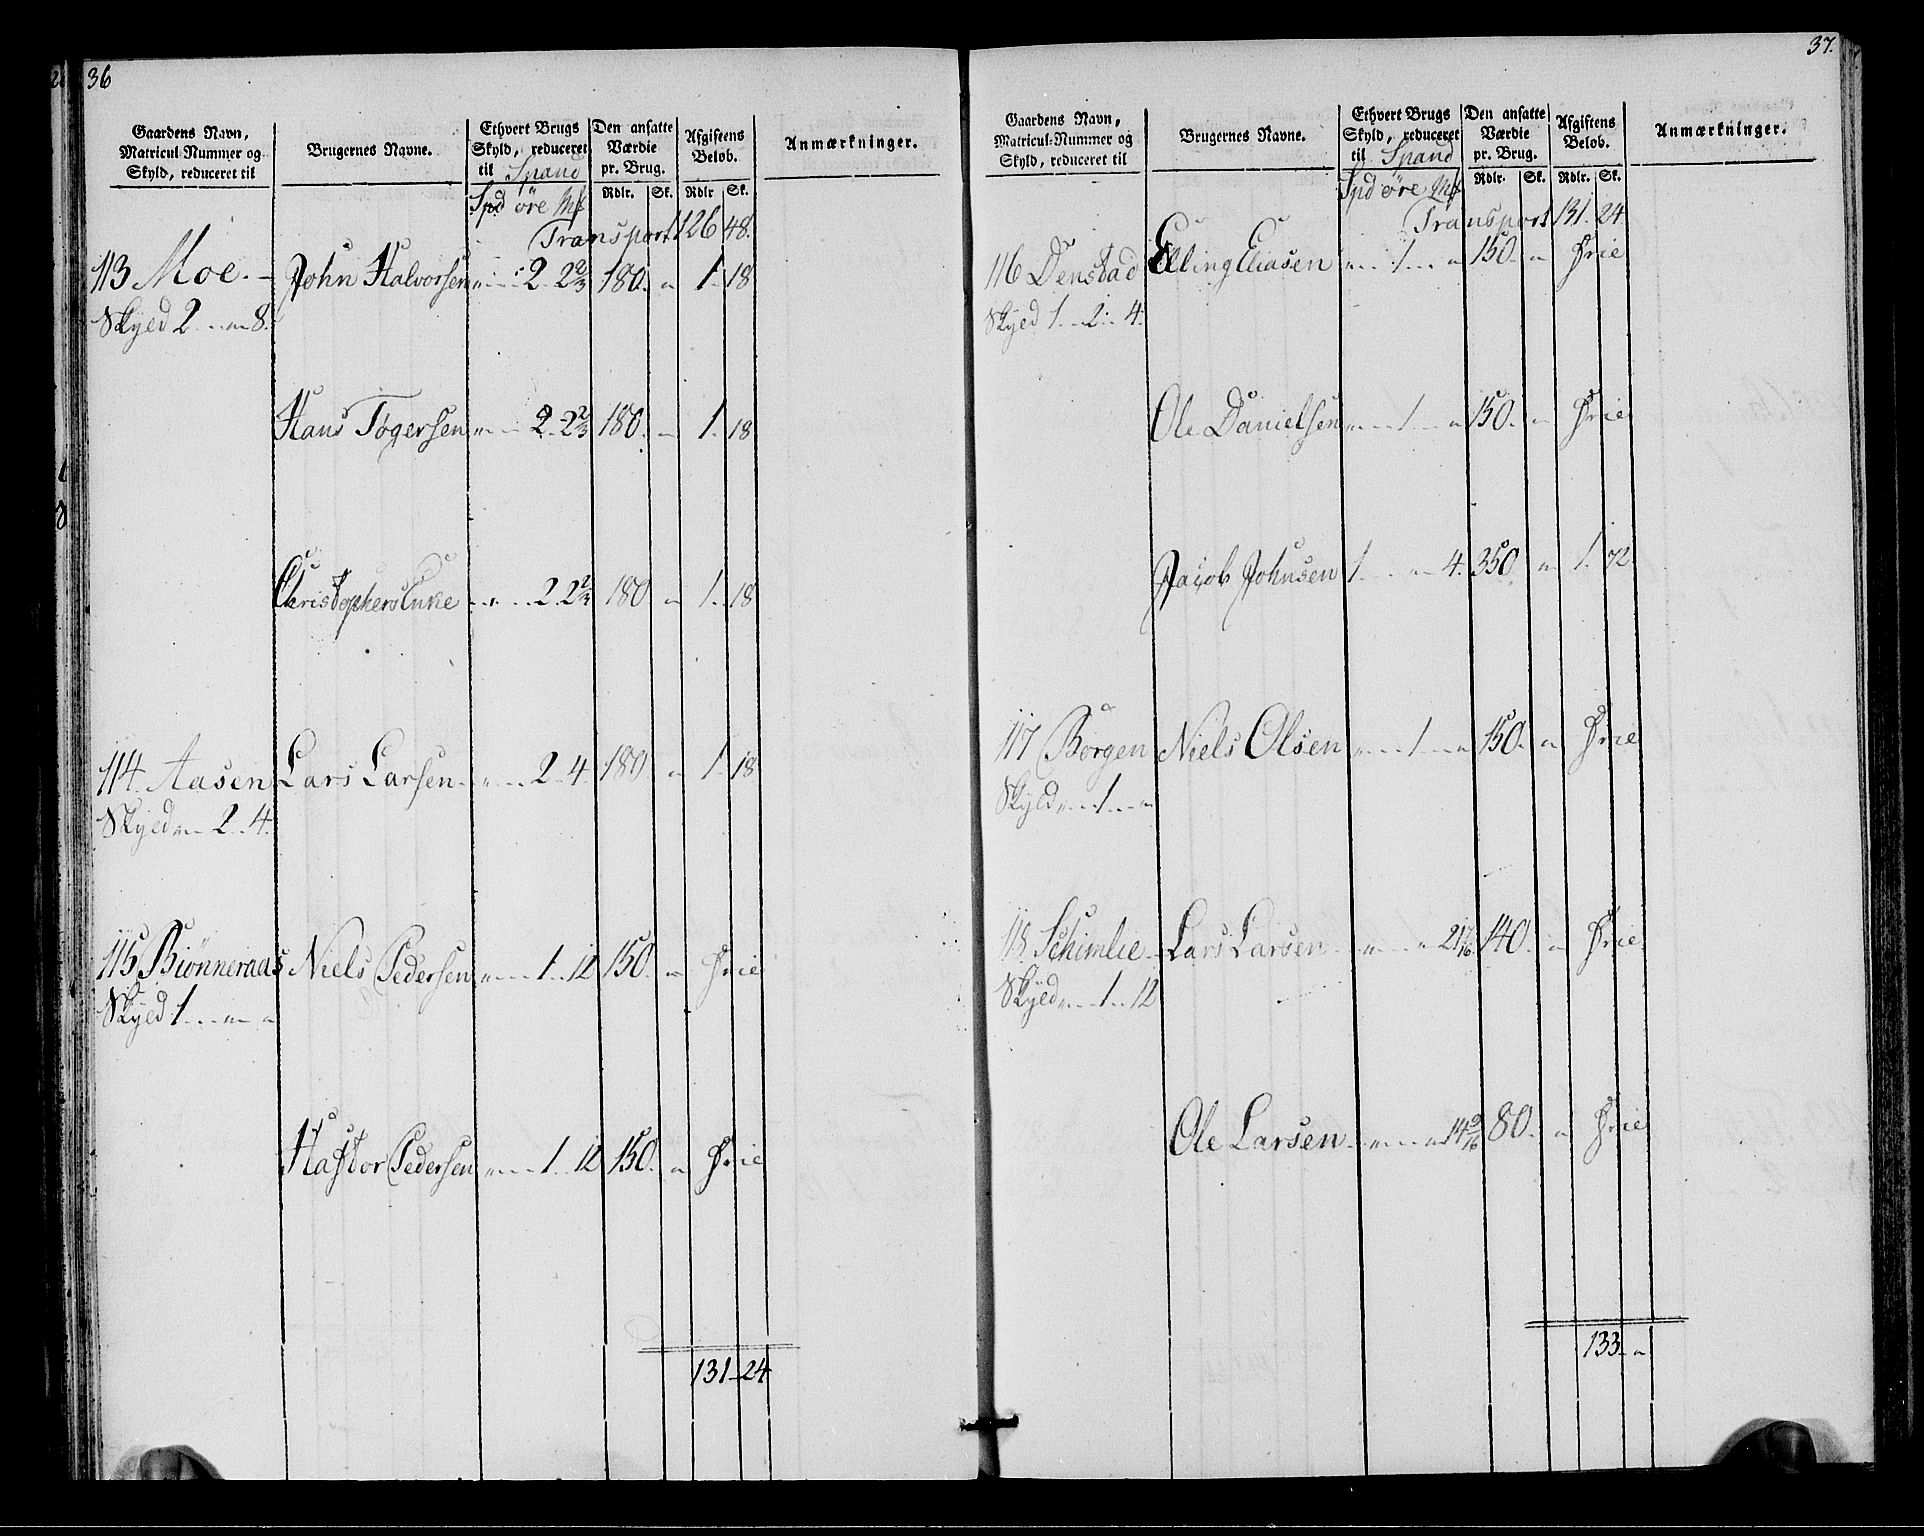 36
Gaardens Navn,
Matricul-Nummer og
Skyld, reduceret til
Brugernes Navne.
Ethvert Brugs
Skyld, reduceret
til Spand
Spd öre Mk
Den ansatte
Værdie
pr. Brug.
Rdlr. Sk.
Afgiftens
Beløb.
Rdlr. Sk.
Anmærkninger.
Transport 126 48.
113 Moe. John Halvorsen " 2 2 2/3 180. " 1. 18
Skyld 2 " 8.
Hans Togersen " 2 2 2/3 180. " 1. 18
Christophers Enke " 2 2 2/3 180 " 1. 18
114. Aasen Lars Larsen " 2 4. 180 " 1. 18
Skyld " 2 4.
115 Biönneraas Niels Pedersen " 1 12 150. " Frie
Skyld 1 " "
Hastor Pedersen " 1 12 150. " Frie
131 24
37.
Gaardens Navn,
Matricul-Nummer og
Skyld, reduceret til
Brugernes Navne.
Ethvert Brugs
Skyld, reduceret
til Spand
Spd öre Mk
Den ansatte
Værdie
pr. Brug.
Rdlr. Sk.
Afgiftens
Beløb.
Rdlr. Sk.
Anmærkninger.
Transport 131. 24
116 Denstad Elling Eliasen " 1 " 150. " Frie
Skyld 1 2 4.
Ole Danielsen " 1 " 150. " Frie
Jacob Johnsen 1 " 4. 350. " 1. 72
117 Borgen Niels Olsen " 1 " 150. " Frie
Skyld " 1 "
118. Schimlie Lars Larsen " " 21 7/16 140. " Frie
Skyld " 1 12
Ole Larsen " " 14 9/16 80. " Frie
133 "